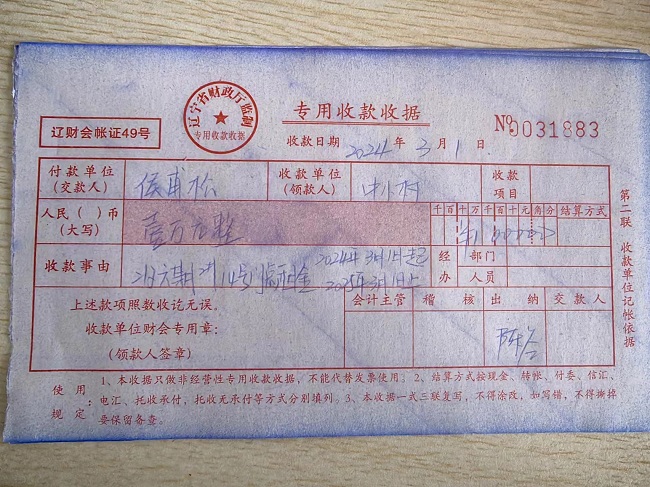 辽宁省财政厅监制
专用收款收据
专用收款收据
辽财会帐证49号
收款日期 2024 年 3 月 1 日
№0031883
付款单位 侯甫松 收款单位 收款
(交款人) (领款人) 项目
人民( )币 壹万元整 千百十万千百十元角分 结算方式
(大写)
2024年3月1日起
收款事由 14号门 租金 2025年3月1日止 经 部门
办 人员
上述款项照数收讫无误。 会计主管 稽核 出纳 交款人
收款单位财会专用章:
(领款人签章)
第二联 收款单位记帐依据
使用规定:
1、本收据只做非经营性专用收款收据,不能代替发票使用;2、结算方式按现金、转帐、付委、信汇、
电汇、托收承付,托收无承付等方式分别填列。3、本收据一式三联复写,不得涂改,如写错,不得撕掉
要保留备查。